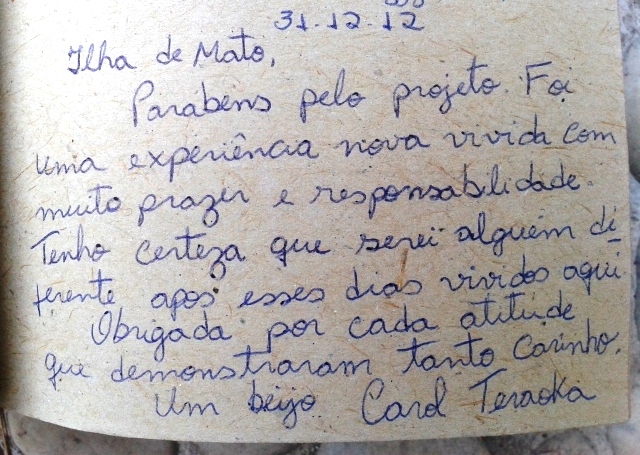 31.12.12
Ilha de Mato,
Parabens pelo projeto. Foi
uma experiência nova vivida com
muito prazer e responsabilidade.
Tenho certeza que serei alguém di
ferente após esses dias vividos aqui
Obrigada por cada atitude
que demonstraram tanto carinho.
Um beijo Carol Teraoka